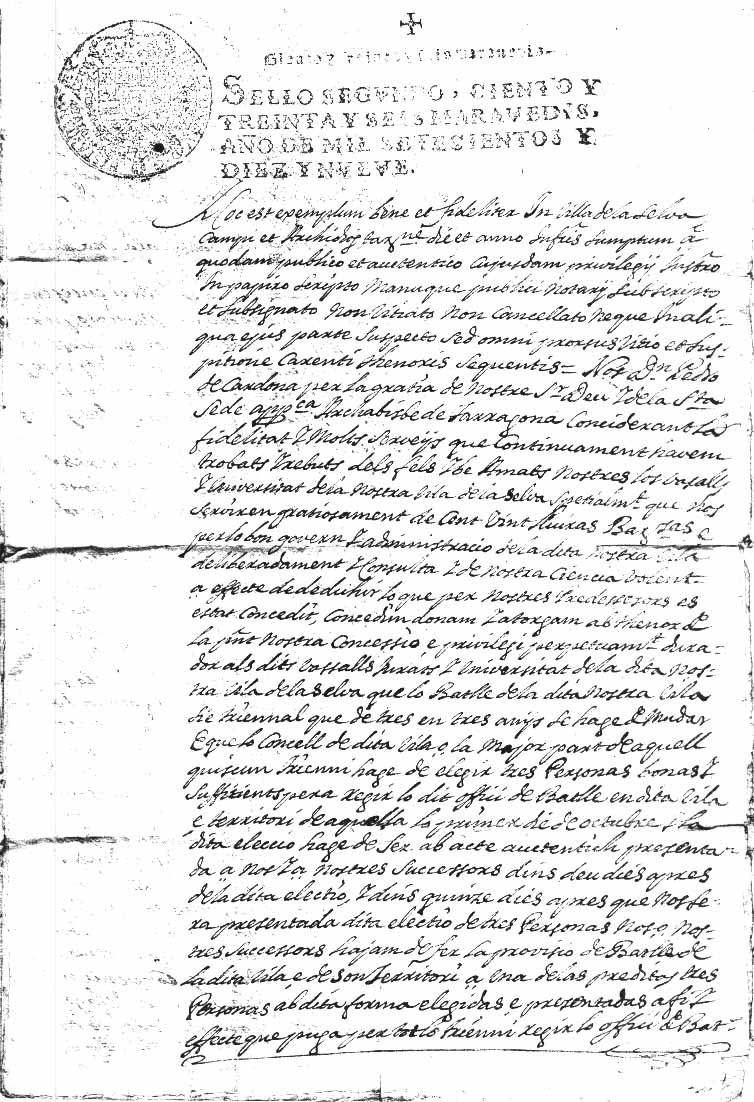 SELLO SEGVNDO, CIENTO Y
TREINTA Y SEIS MARAVEDIS,
AÑO DE MIL SETECIENTOS Y
DIEZ Y NVEVE.
Hoc est exemplum bene et fideliter In Villa de la Selva
Campi et Archidiog tarrne die et anno Infris sumptum a
quodam publico et auctentico Cujusdam privilegij Instro
In papiro scripto Manuque publici Notarij Subscripto
et Subsignato Non Vitiato Non Cancellato Neque In ali-
qua ejus parte Suspecto Sed omni prorsus Vitio et sus-
pitione Carenti thenoris Sequentis = Nos Dn Pedro
de Cardona per la gratia de Nostre Sr Deu Y de la Sta
Sede appca Archabisbe de Tarragona Conciderant la
fidelitat Y Molts Serveijs que Continuament havem
trobats Y rebuts dels fels Y be Amats Nostres los Vasalls
Y Universitat de la Nostra Vila de la Selva Spetialmt que Nos
Serviren gratiosament de Cent Vint lliuras e
per lo bon govern Y administracio de la dita nostra Vila
deliberadament Y Consulta Y de Nostra Ciencia Volent
a effecte de deduhir lo que per Nostres Predessesors es
estat Concedit, Concedim donam Y atorgam ab thenor de
la pnt Nostra Concessio e privilegi perpetuamt dura-
dor als dits Vassalls Jurats Y Universitat de la dita Nos-
tra Vila de la Selva que lo Batlle de la dita Nostra Vila
sie triennal que de tres en tres anijs se hage de Mudar
E que lo Concell de dita Vila, o, la Major part de aquell
quiscun Trienni hage de elegir tres Personas bonas Y
Suffitients pera regir lo dit offici de Batlle en dita Vila
e territori de aquella lo primer die de octubre, Y la
dita eleccio hage de Ser ab acte auctentich presenta-
da a Nos Y a Nostres Successors dins deu dies apres
de la dita electio, Y dins quinze dies apres que Nos se-
ra presentada dita electio de tres Personas Nos, o, Nos-
tres Successors hajam de fer la provisio de Batlle de
la dita Vila e de son Territori a Una de las preditas tres
Personas ab dita forma elegidas e presentadas a fi Y
effecte que puga per tot lo trienni regir lo offici de Bat-